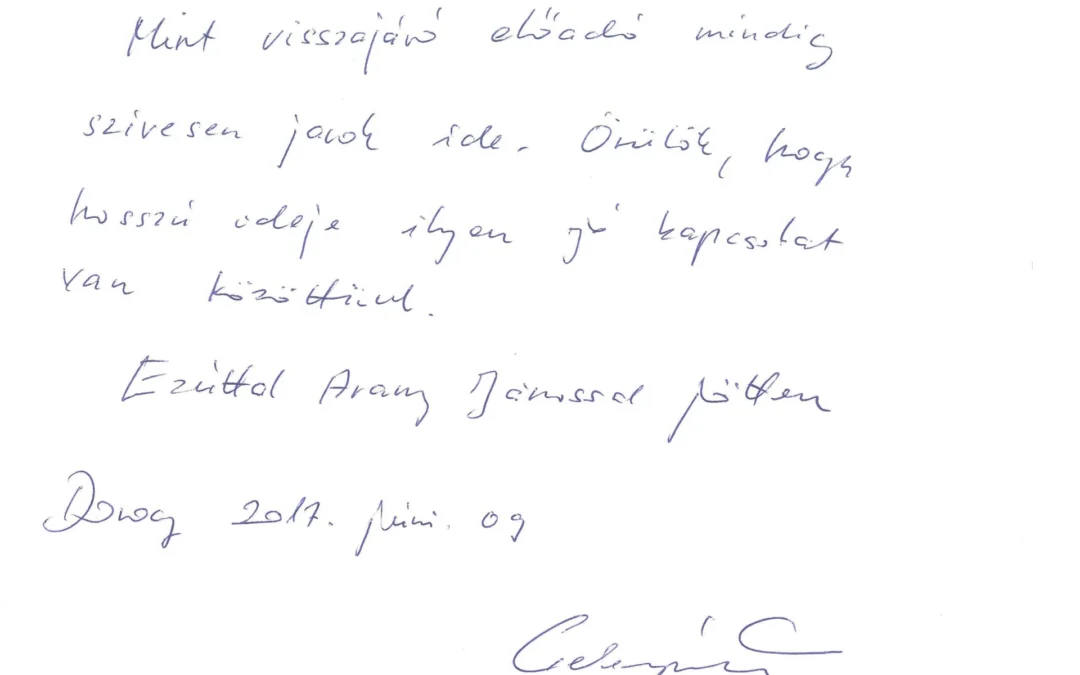 Mint visszajáró előadó mindig
szívesen jarok ide. Örülök, hogy
hosszú ideje ilyen jó kapcsolat
van közöttünk.
Ezúttal Arany Jánossal jöttem
Dorog 2017. júni. 09